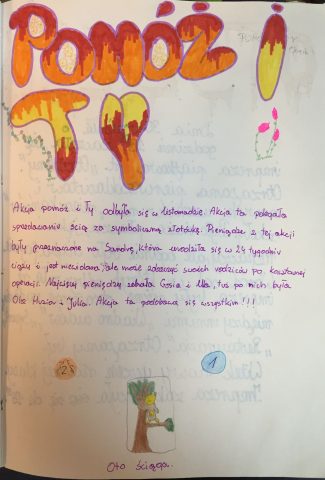 POMÓŻ I
TY
Akcja pomóż i Ty odbyła się w listopadzie. Akcja ta polegała
sprzedawaniu ściąg za symboliczną złotówkę. Pieniądze z tej akcji
były przeznaczone na Sandrę, która urodziła się w 24 tygodniu
ciąży i jest niewidoma, ale może zobaczyć swoich rodziców po kosztownej
operacji. Najwięcej pieniędzy zebrała Gosia i Ula, tuż po nich była
Ola i Julia. Akcja ta podobała się wszystkim!!!
2
1
Oto ściąga.